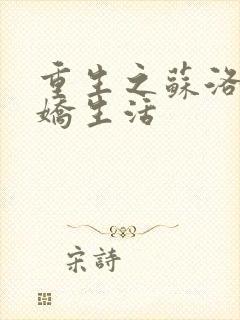 重生之蘇洛
嬌生活
宋詩